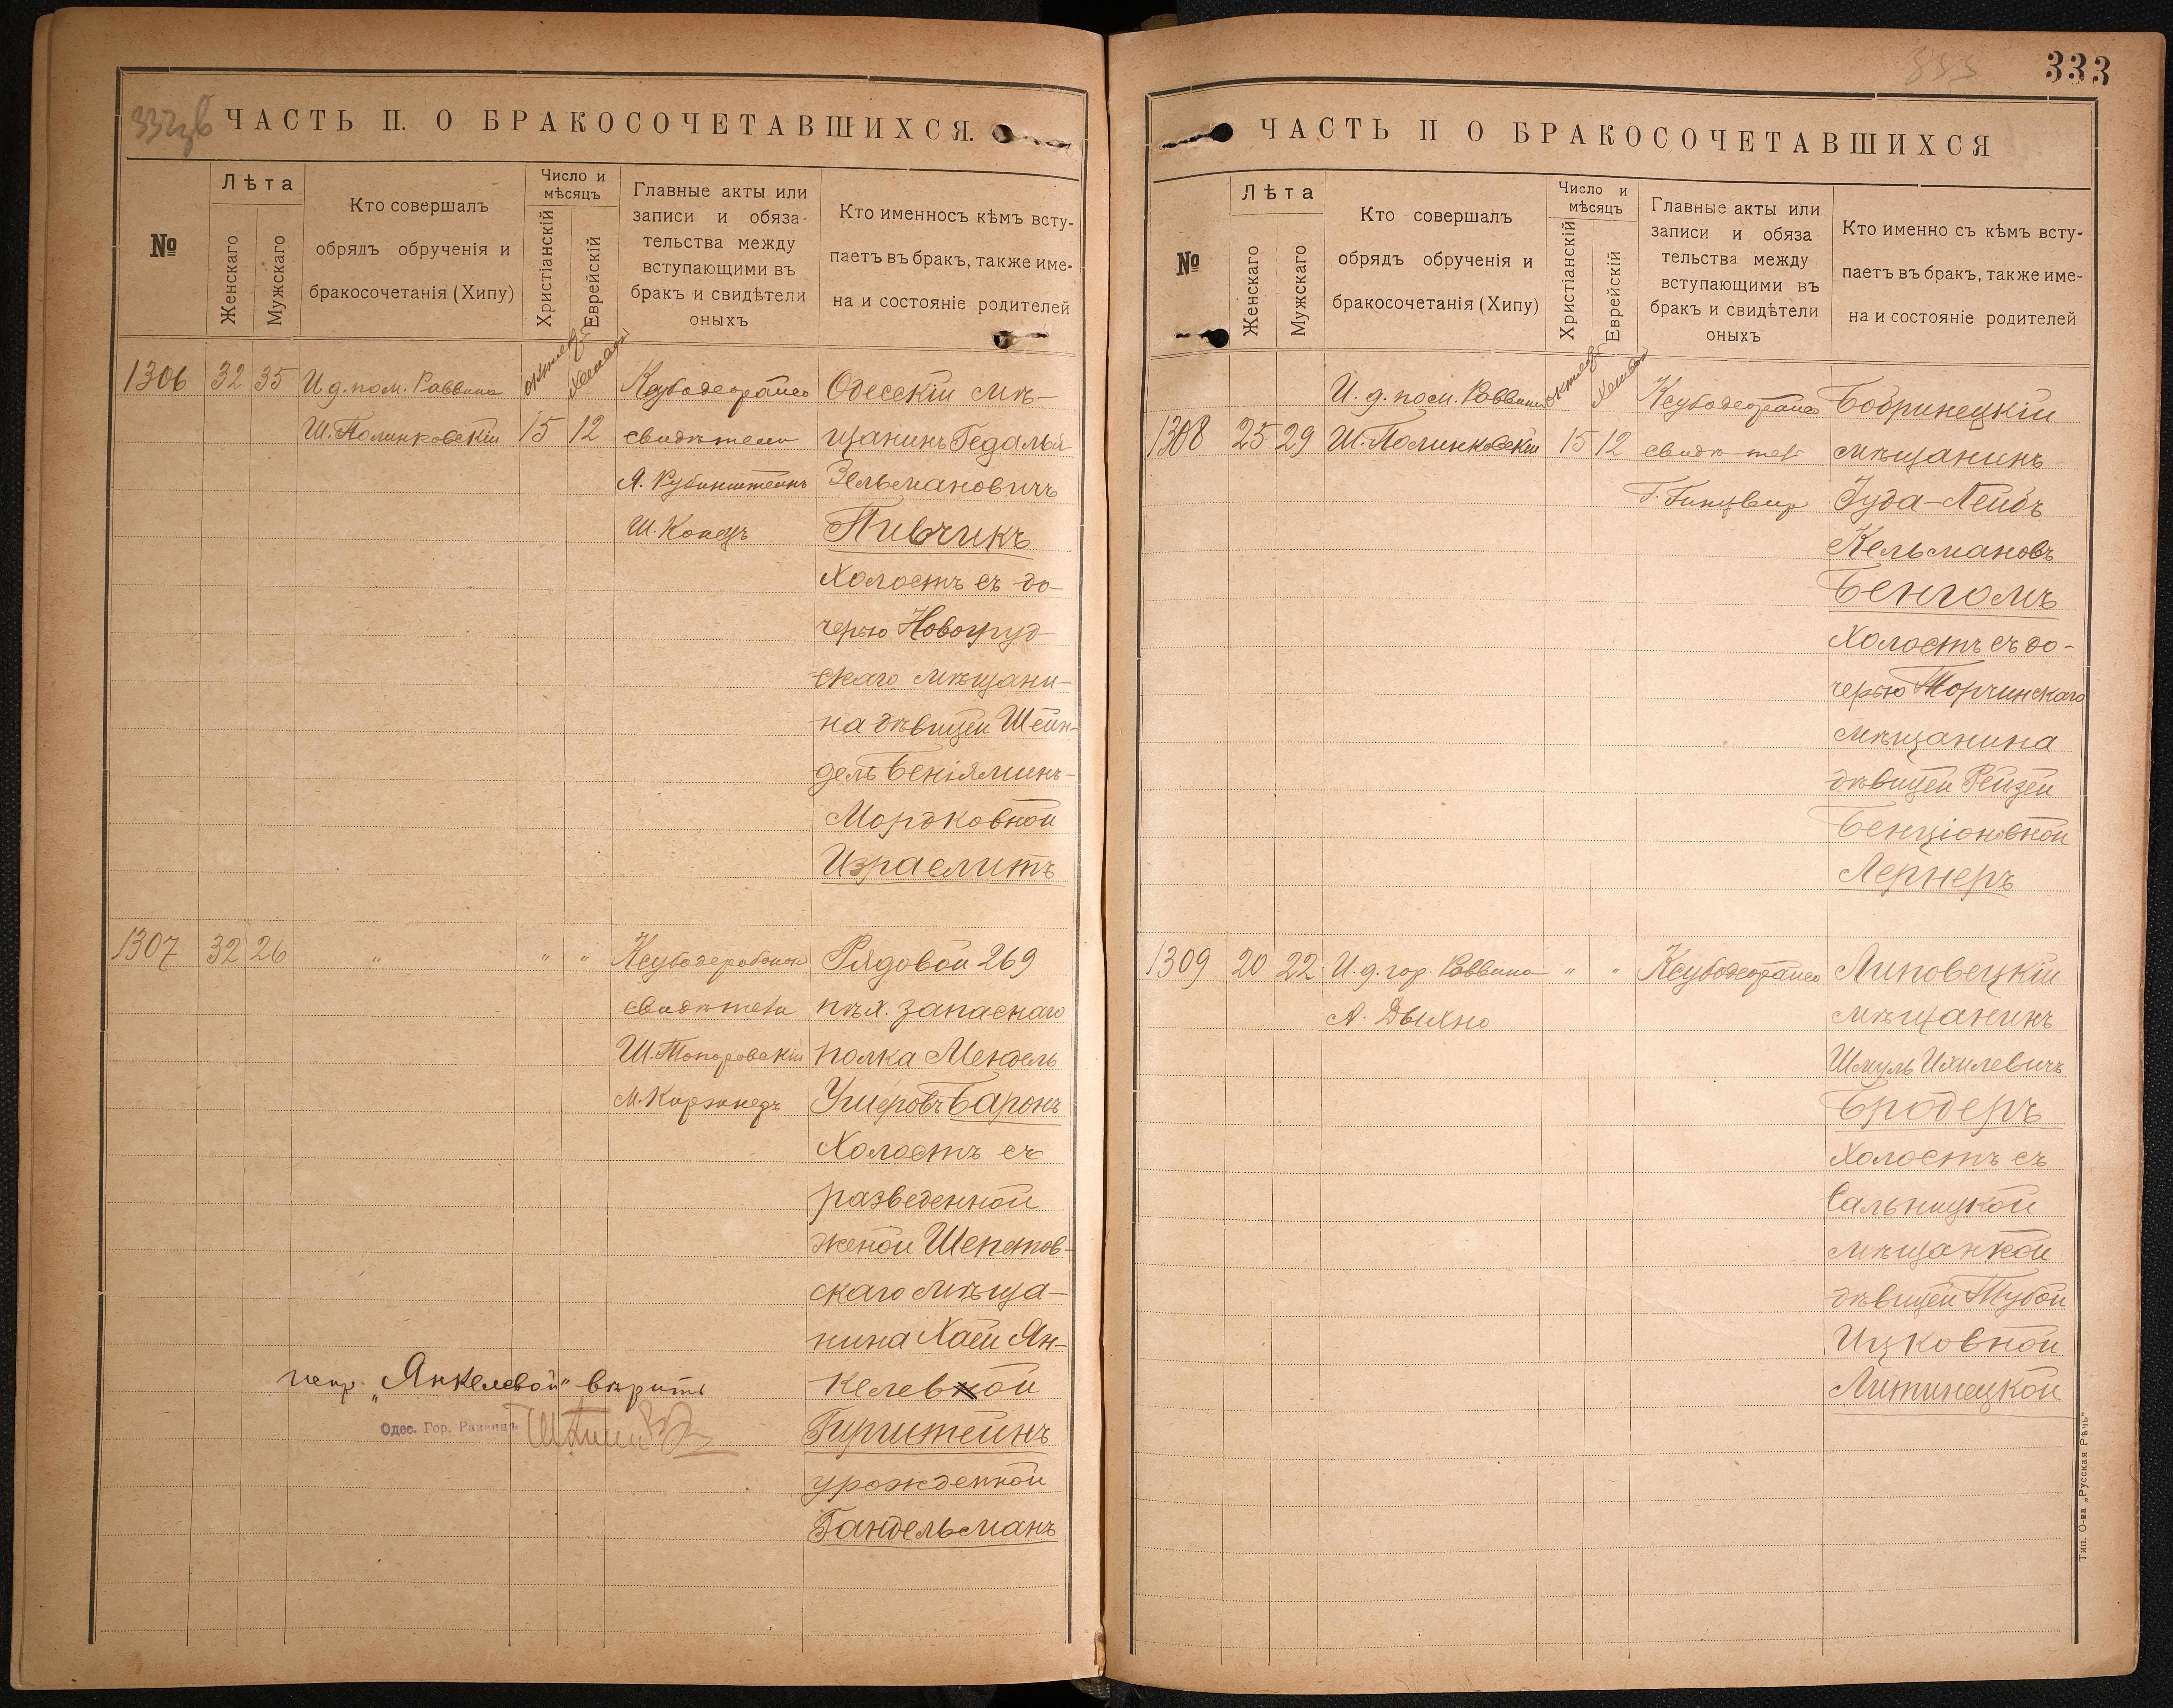 ЧАСТЬ II. О БРАКОСОЧЕТАВШИХСЯ.
№
Лѣта
Женскаго
Мужскаго
Кто совершалъ
обрядъ обрученія и
бракосочетанія (Хипу)
Число и
мѣсяцъ
Христіанскій
Еврейскій
Главные акты или
записи и обяза-
тельства между
вступающими въ
бракъ и свидѣтели
оныхъ
Кто именносъ кѣмъ всту-
паетъ въ бракъ, также име-
на и состояніе родителей
1306 32 35 И д. пом. Раввина
Ш. Полинковскій
15 12
свидѣтели
А. Рубинштейнъ
Одесскій мѣ-
щанинъ Гедалья
Зельмановичъ
Пивчикъ
Холостъ съ до-
черью Новогруд-
скаго мѣщани-
на дѣвицей Шейн-
дель Беніяминъ-
Мордковной
Израелитъ
1307 32 26 " " "
свидѣтели
Ш. Топоровскій
Рядовой 269
пѣх. запаснаго
полка Мендель
Ушеровъ Баронъ
Холостъ съ
разведенной
женой Шепетов-
скаго мѣща-
нина Хаей Ян-
келевной
Гирштейнъ
урожденной
Гандельманъ
„Янкелевой" вѣрить
Одес. Гор. Раввинъ
333
ЧАСТЬ II О БРАКОСОЧЕТАВШИХСЯ
№
Лѣта
Женскаго
Мужскаго
Кто совершалъ
обрядъ обрученія и
бракосочетанія (Хипу)
Число и
мѣсяцъ
Христіанскій
Еврейскій
Главные акты или
записи и обяза
тельства между
вступающими въ
бракъ и свидѣтели
оныхъ
Кто именно съ кѣмъ всту-
паетъ въ бракъ, также име-
на и состояніе родителей
И. д. пом. Раввина
1308 25 29 Ш. Полинковскій
15 12
Бобринецкій
мѣщанинъ
Іуда-Лейбъ
Кельмановъ
Бенгомъ
Холостъ съ до-
черью Торчинскаго
мѣщанина
дѣвицей Рейзей
Бенціоновной
Лернеръ
1309 20 22 И. д. гор. Раввина " "
А. Двихно
Липовецкій
мѣщанинъ
Шмуль Ихилевичъ
Бродеръ
Холостъ съ
Сальницкой
мѣщанкой
дѣвицей Тубой
Ицковной
Литинецкой
Тип. О-ва „Русская Рѣчь"